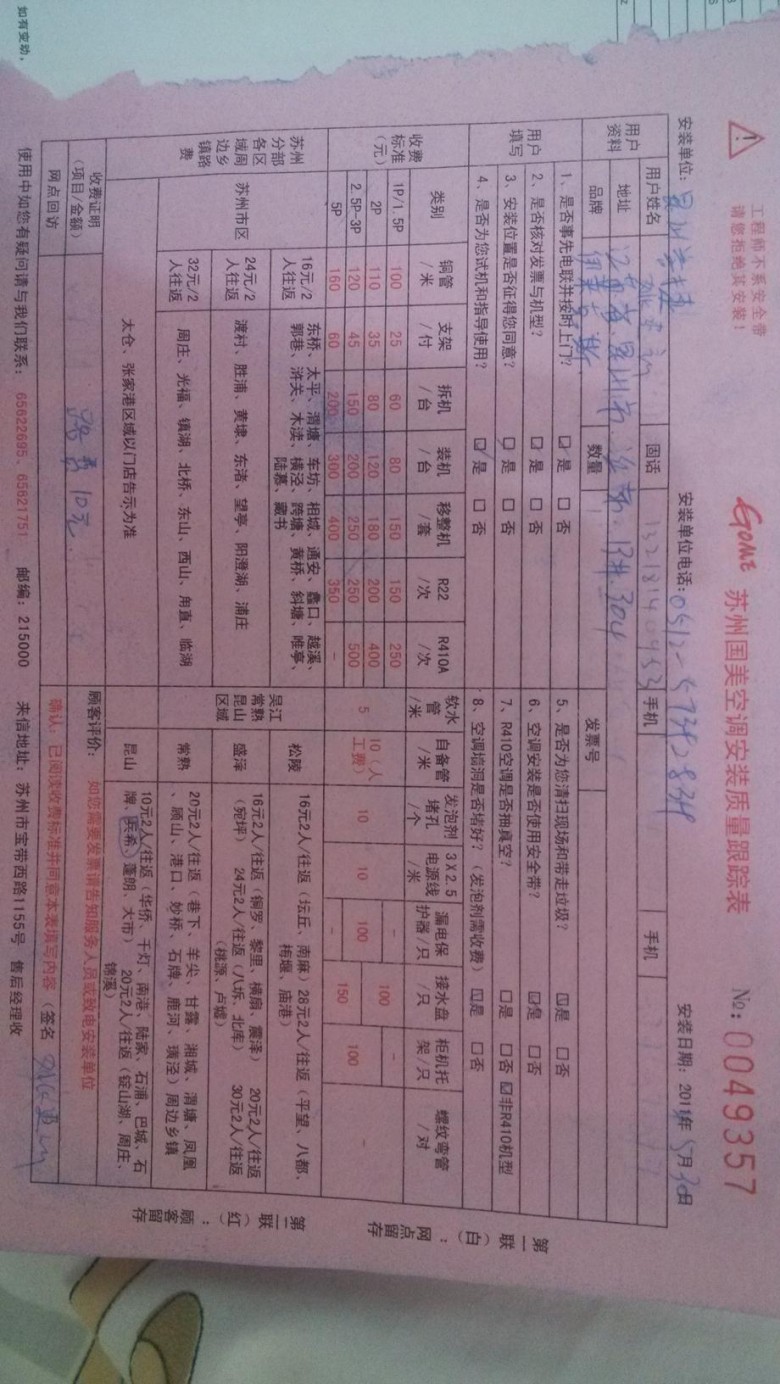 如有变动，
工程师不系安全带
请您拒绝其安装！
GOME 苏州国美空调安装质量跟踪表 №: 0049357
安装单位: 安装单位电话: 0512-57392834 安装日期: 2011年5月30日
用户资料 用户姓名 固话 手机 手机
地址 江苏省昆山市 304
品牌 数量 发票号
用户填写
1、是否事先电联并按时上门？ ☑是 □否 5、是否为您清扫现场和带走垃圾？ ☑是 □否
2、是否核对发票与机型？ ☑是 □否 6、空调安装是否使用安全带？ ☑是 □否
3、安装位置是否征得您同意？ ☑是 □否 7、R410空调是否抽真空？ □是 □否 ☑非R410机型
4、是否为您试机和指导使用？ ☑是 □否 8、空调墙洞是否堵好？（发泡剂需收费） ☑是 □否
收费标准（元） 类别 铜管/米 支架/付 拆机/台 装机/台 移整机/套 R22/次 R410A/次 软水管/米 自备管/米 发泡剂堵孔/个 3X2.5电源线/米 漏电保护器/只 接水盘/只 柜机托架/只 螺纹弯管/对
1P/1.5P 100 25 60 80 150 150 250 5 10（人工费） 10 10 - 100 - -
2P 110 35 80 120 180 200 400 100
2.5P-3P 120 45 150 200 250 250 500 150 100
5P 160 60 200 300 400 350 - -
苏州分部各区域周边乡镇路费 苏州市区
16元/2人往返 东桥、太平、渭塘、车坊、相城、通安、蠡口、越溪、郭巷、浒关、木渎、横泾、跨塘、黄桥、斜塘、唯亭、陆慕、藏书
24元/2人往返 渡村、胜浦、黄埭、东渚、望亭、阳澄湖、浦庄
32元/2人往返 周庄、光福、镇湖、北桥、东山、西山、甪直、临湖
太仓、张家港区域以门店告示为准
吴江常熟昆山区域
松陵 16元2人/往返（坛丘、南麻）28元2人/往返（平望、八都、梅堰、庙港）
盛泽 16元2人/往返（铜罗、黎里、横扇、震泽） 20元2人/往返（宛坪） 24元2人/往返（八坼、北厍） 30元2人/往返（桃源、卢墟）
常熟 20元2人/往返（巷下、羊尖、甘露、湘城、渭塘、凤凰、顾山、港口、妙桥、石牌、鹿河、璜泾）周边乡镇
昆山 10元2人/往返（华侨、千灯、南港、陆家、石浦、巴城、石牌、兵希、蓬朗、大市） 20元2人/往返（锭山湖、周庄、锦溪）
收费证明（项目/金额） 路费10元 顾客评价: 如您需要发票请告知服务人员或致电安装单位
网点回访 确认：已阅读收费标准并同意本表填写内容 （签名
使用中如您有疑问请与我们联系：65622695、65621751 邮编：215000 来信地址：苏州市宝带西路1155号 售后经理收
第一联（白）：网点存
第二联（红）：顾客留存